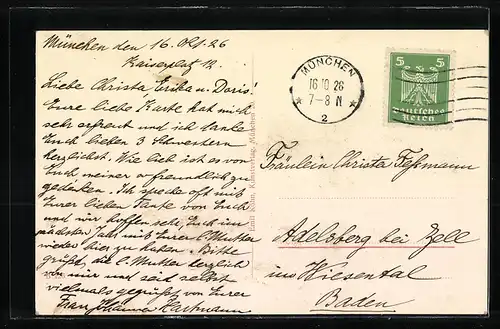 München den 16. Okt. 26
Kaiserplatz 12.
Liebe Christa, Erika u. Doris!
Eure liebe Karte hat mich
sehr erfreut und ich danke
Euch lieben 3 Schwestern
herzlichst. Wie lieb ist es von
Euch meiner so freundlich zu
gedenken. Ich spreche oft mit
Eurer lieben Tante von Euch
und wir hoffen sehr, Euch im
nächsten Jahr mit Eurer l. Mutter
wieder hier zu haben. Bitte
grüßt die l. Mutter herzlich
von mir und seid selbst
vielmals gegrüßt von Eurer
Frau Johanna Hartmann
Kunstverlag, München
MÜNCHEN
16 10 26
7-8 N
2
5 5
Deutsches
Reich
Fräulein Christa Faßmann
Adelsberg bei Zell
ins Wiesental
Baden